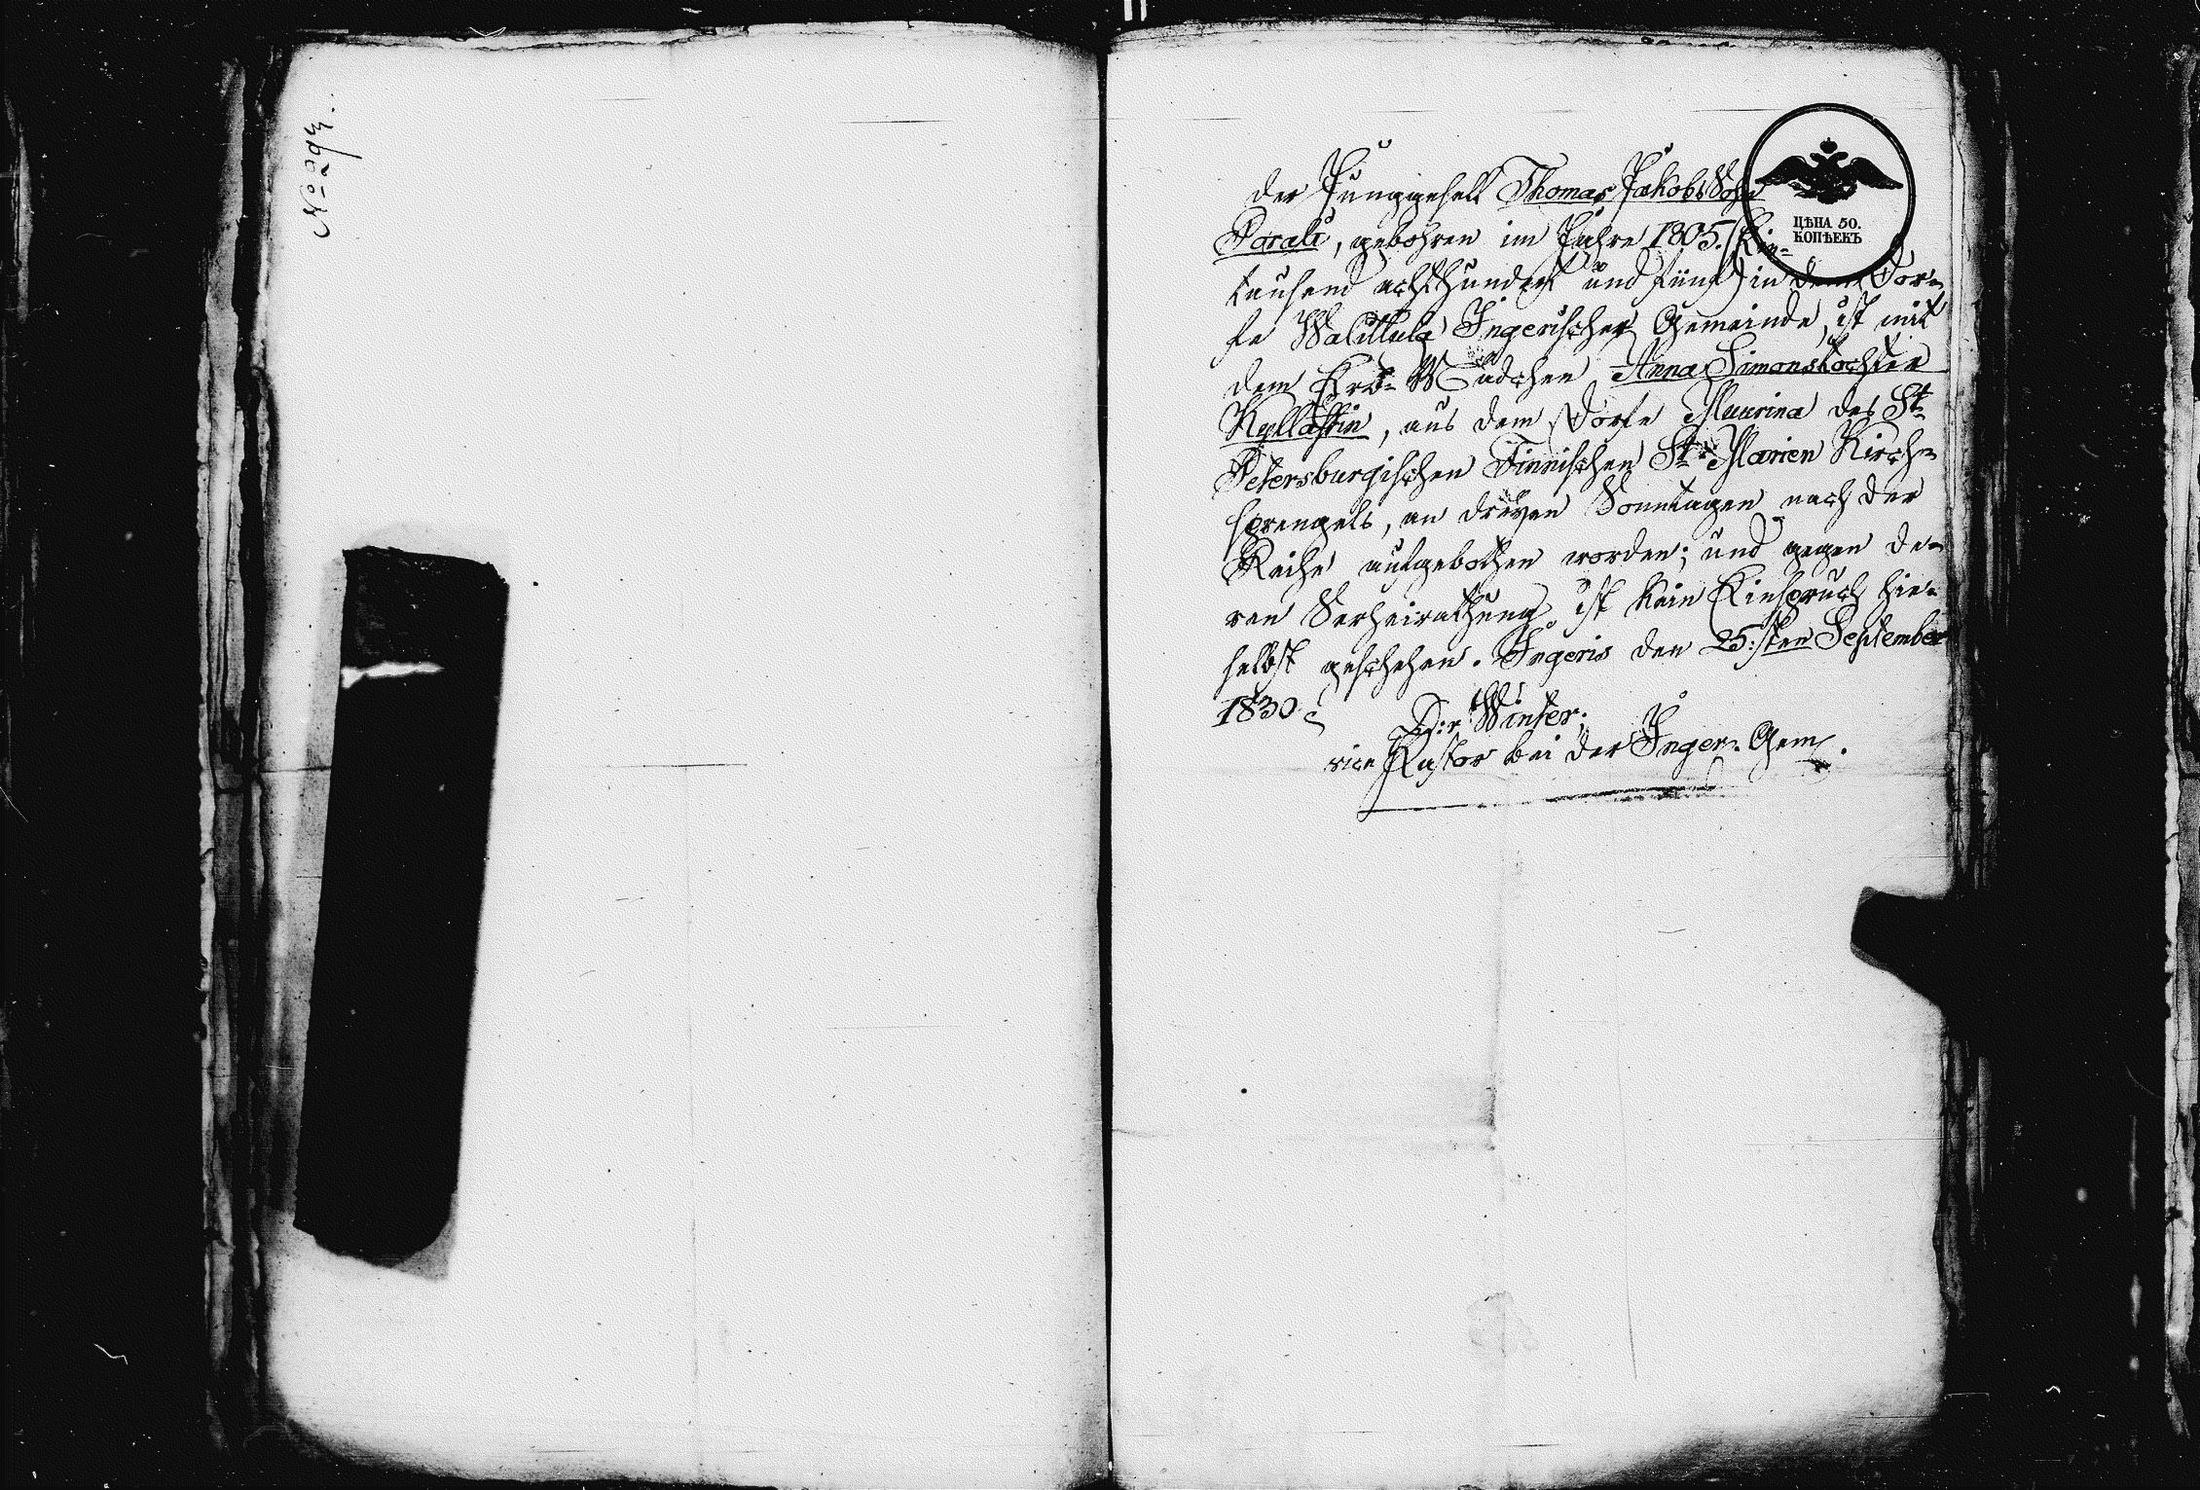 Der Junggesell Thomas Jakobs Sohn
Porali, gebohren im Jahre 1805. (Ein-
tausend achthundert und fünf) in dem Dor-
fe Walittula Ingerischer Gemeinde, ist mit
dem Erb- Mädchen Anna Simonstochter
Kyllästin, aus dem Dorfe Muurina des St-
Petersburgischen Finnischen St. Marien Kirch-
sprengels, an dreyen Sonntagen nach der
Reihe aufgebothen worden; und gegen de-
ren Verheirathung ist kein Einspruch hie-
selbst geschehen. Ingeris den 25:sten September
1830
D:r Winter,
vice Pastor bei der Inger. Gem.
ЦѢНА 50.
КОПѢЕКЪ